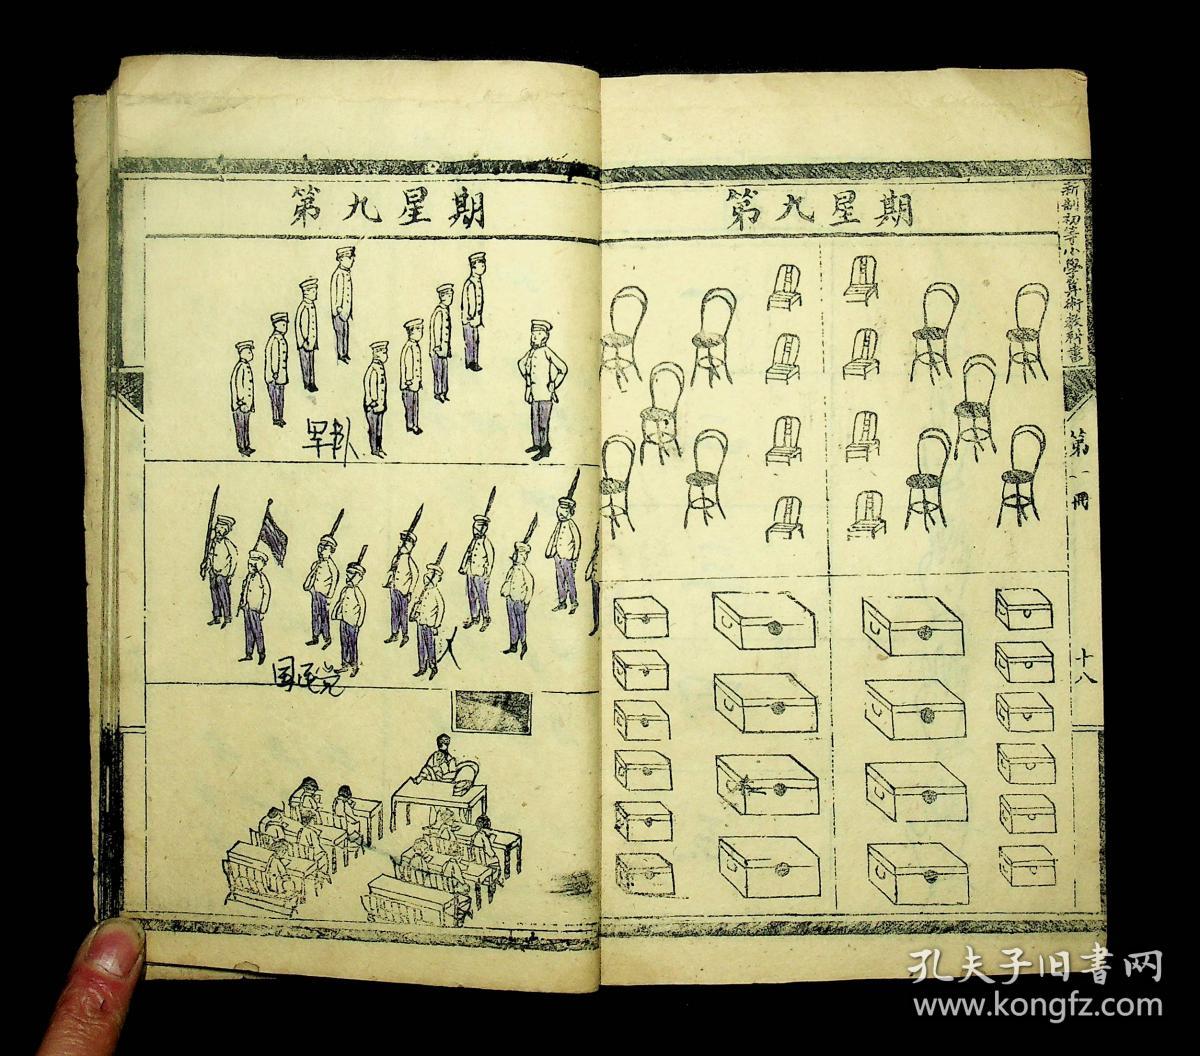 第九星期
第九星期
新制初等小學算術教科書
第一冊
十八
国民党
人
孔夫子旧書网
www.kongfz.com